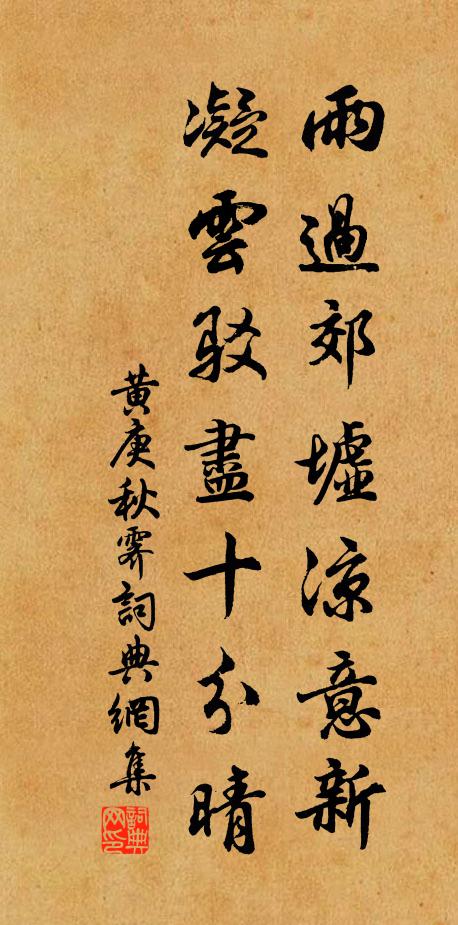 雨過郊墟涼意新
凝雲駁盡十分晴
黃庚秋霽詞典網集
詞典网印